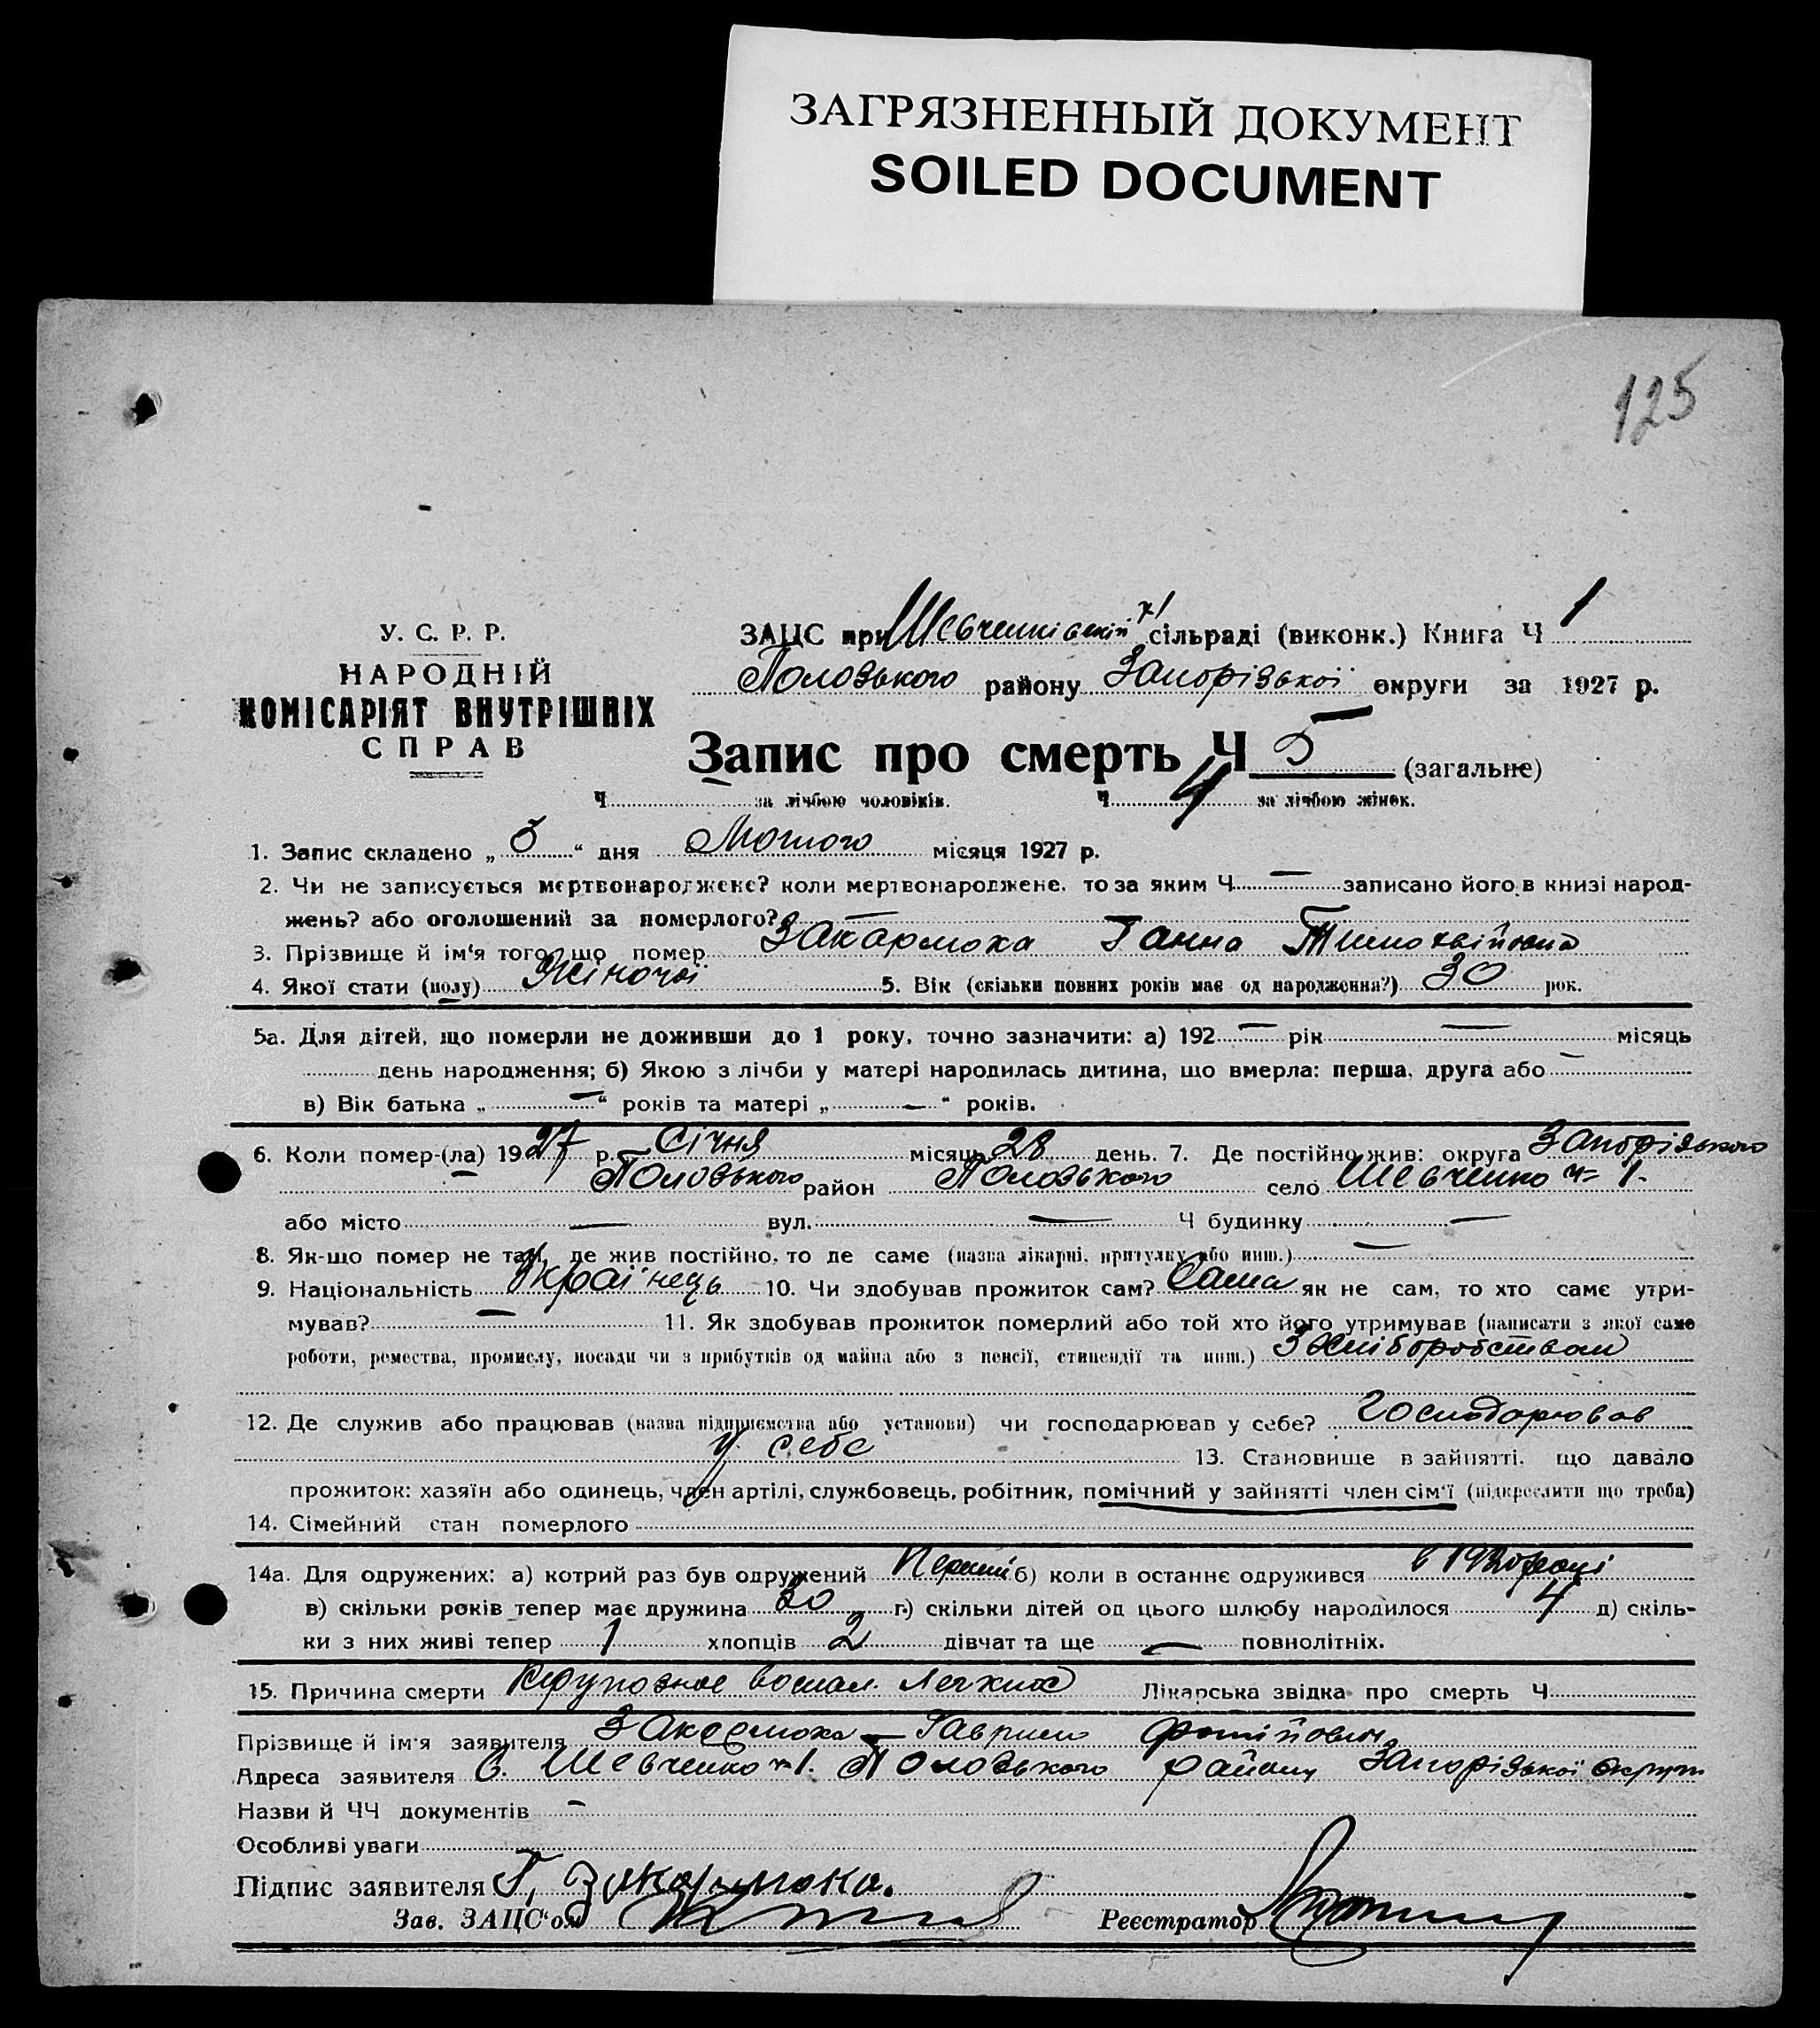 ЗАГРЯЗНЕННЫЙ ДОКУМЕНТ
SOILED DOCUMENT
125
У. С. Р. Р.
НАРОДНІЙ
КОМІСАРІЯТ ВНУТРІШНІХ
СПРАВ
ЗАЦС при Шевченківській сільраді (виконк.) Книга Ч 1
Пологського району Запорізької округи за 1927 р.
Запис про смерть Ч 5 (загальне)
Ч за лічбою чоловіків. Ч 4 за лічбою жінок.
1. Запис складено „ 3 “ дня Лютого місяця 1927 р.
2. Чи не записується мертвонароджене? коли мертвонароджене, то за яким Ч — записано його в книзі народ-
жень? або оголошений за померлого? —
3. Прізвище й ім‘я того, що помер Закарлюка Ганна Тимохвіївна
4. Якої стати (полу) Жіночої 5. Вік (скільки повних років має од народження?) 30 рок.
5а. Для дітей, що померли не доживши до 1 року, точно зазначити: а) 192 — рік — місяць
день народження; б) Якою з лічби у матері народилась дитина, що вмерла: перша, друга або —
в) Вік батька „ — “ років та матері „ — “ років.
6. Коли помер-(ла) 1927 р. Січня місяць 28 день. 7. Де постійно жив: округа Запорізького
Пологського район Пологського село Шевченко ч= 1.
або місто — вул. — Ч будинку —
8. Як-що помер не там, де жив постійно, то де саме (назва лікарні, притулку або инш.) —
9. Національність Українець 10. Чи здобував прожиток сам? Сама як не сам, то хто саме утри-
мував? — 11. Як здобував прожиток померлий або той хто його утримував (написати з якої саме
роботи, ремества, промислу, посади чи з прибутків од майна або з пенсії, стипендії та инш.) З хліборобством
12. Де служив або працював (назва підприємства або установи) чи господарював у себе? Господарював
у себе 13. Становище в зайнятті, що давало
прожиток: хазяїн або одинець, член артілі, службовець, робітник, помічний у зайнятті член сім‘ї (підкреслити що треба)
14. Сімейний стан померлого
14а. Для одружених: а) котрий раз був одружений Перший б) коли в останнє одружився в 1920 році
в) скільки років тепер має дружина 30 г) скільки дітей од цього шлюбу народилося 4 д) скіль-
ки з них живі тепер 1 хлопців 2 дівчат та ще — повнолітніх.
15. Причина смерти Крупозное воспал. легких Лікарська звідка про смерть Ч
Прізвище й ім‘я заявителя Закарлюка — Гаврило Фотійович
Адреса заявителя С. Шевченко ч 1. Пологського району Запорізької округи
Назви й ЧЧ документів —
Особливі уваги
Підпис заявителя Г. Закарлюка.
Зав. ЗАЦС‘ом
Реєстратор